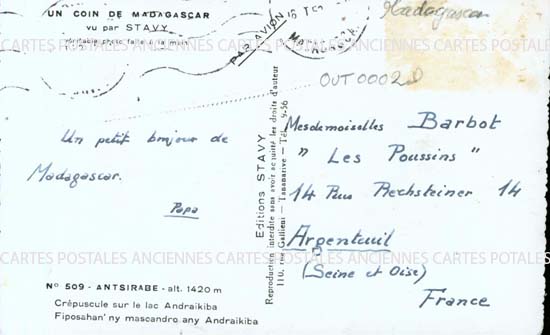 UN COIN DE MADAGASCAR
vu par STAVY
Véritable photo faite à la main
PAR AVION
Madagascar
OUT0002
Un petit bonjour de
Madagascar.
Papa
Nº 509 - ANTSIRABE - alt. 1420 m
Crépuscule sur le lac Andraikiba
Fiposahan' ny mascandro any Andraikiba
Editions STAVY
Reproduction interdite sans avoir acquitté les droits d'auteur
110, rue Galliéni — Tananarive — Tél. 9-56
Mesdemoiselles Barbot
" Les Poussins "
14 Rue Rechsteiner 14
Argenteuil
(Seine et Oise)
France
CARTES POSTALES ANCIENNES CARTES POSTALES ANCIENNES CARTES POTALES
CARTES POSTALES ANCIENNES CARTES POSTALES ANCIENNES CARTES POSTALES